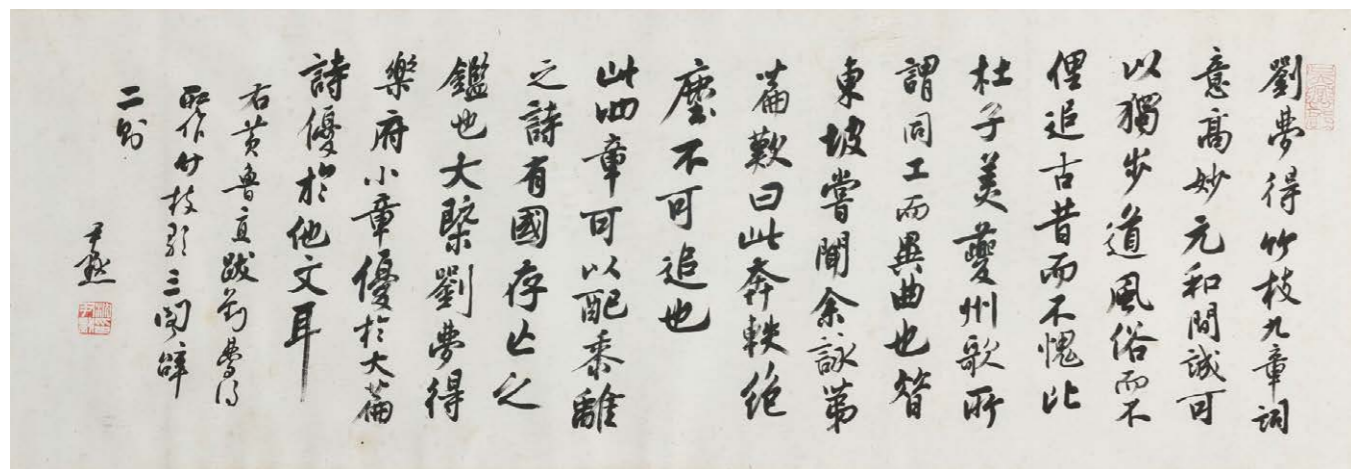 劉夢得竹枝九章詞
意高妙元和間誠可
以獨步道風俗而不
俚追古昔而不愧比
杜子美夔州歌所
謂同工而異曲也昔
東坡嘗聞余詠第
一篇歎曰此奔軼絕
塵不可追也
此四章可以配黍離
之詩有國存亡之
鑑也大槩劉夢得
樂府小章優於大篇
詩優於他文耳
右黃魯直跋劉夢得
所作竹枝三
二則
尹默